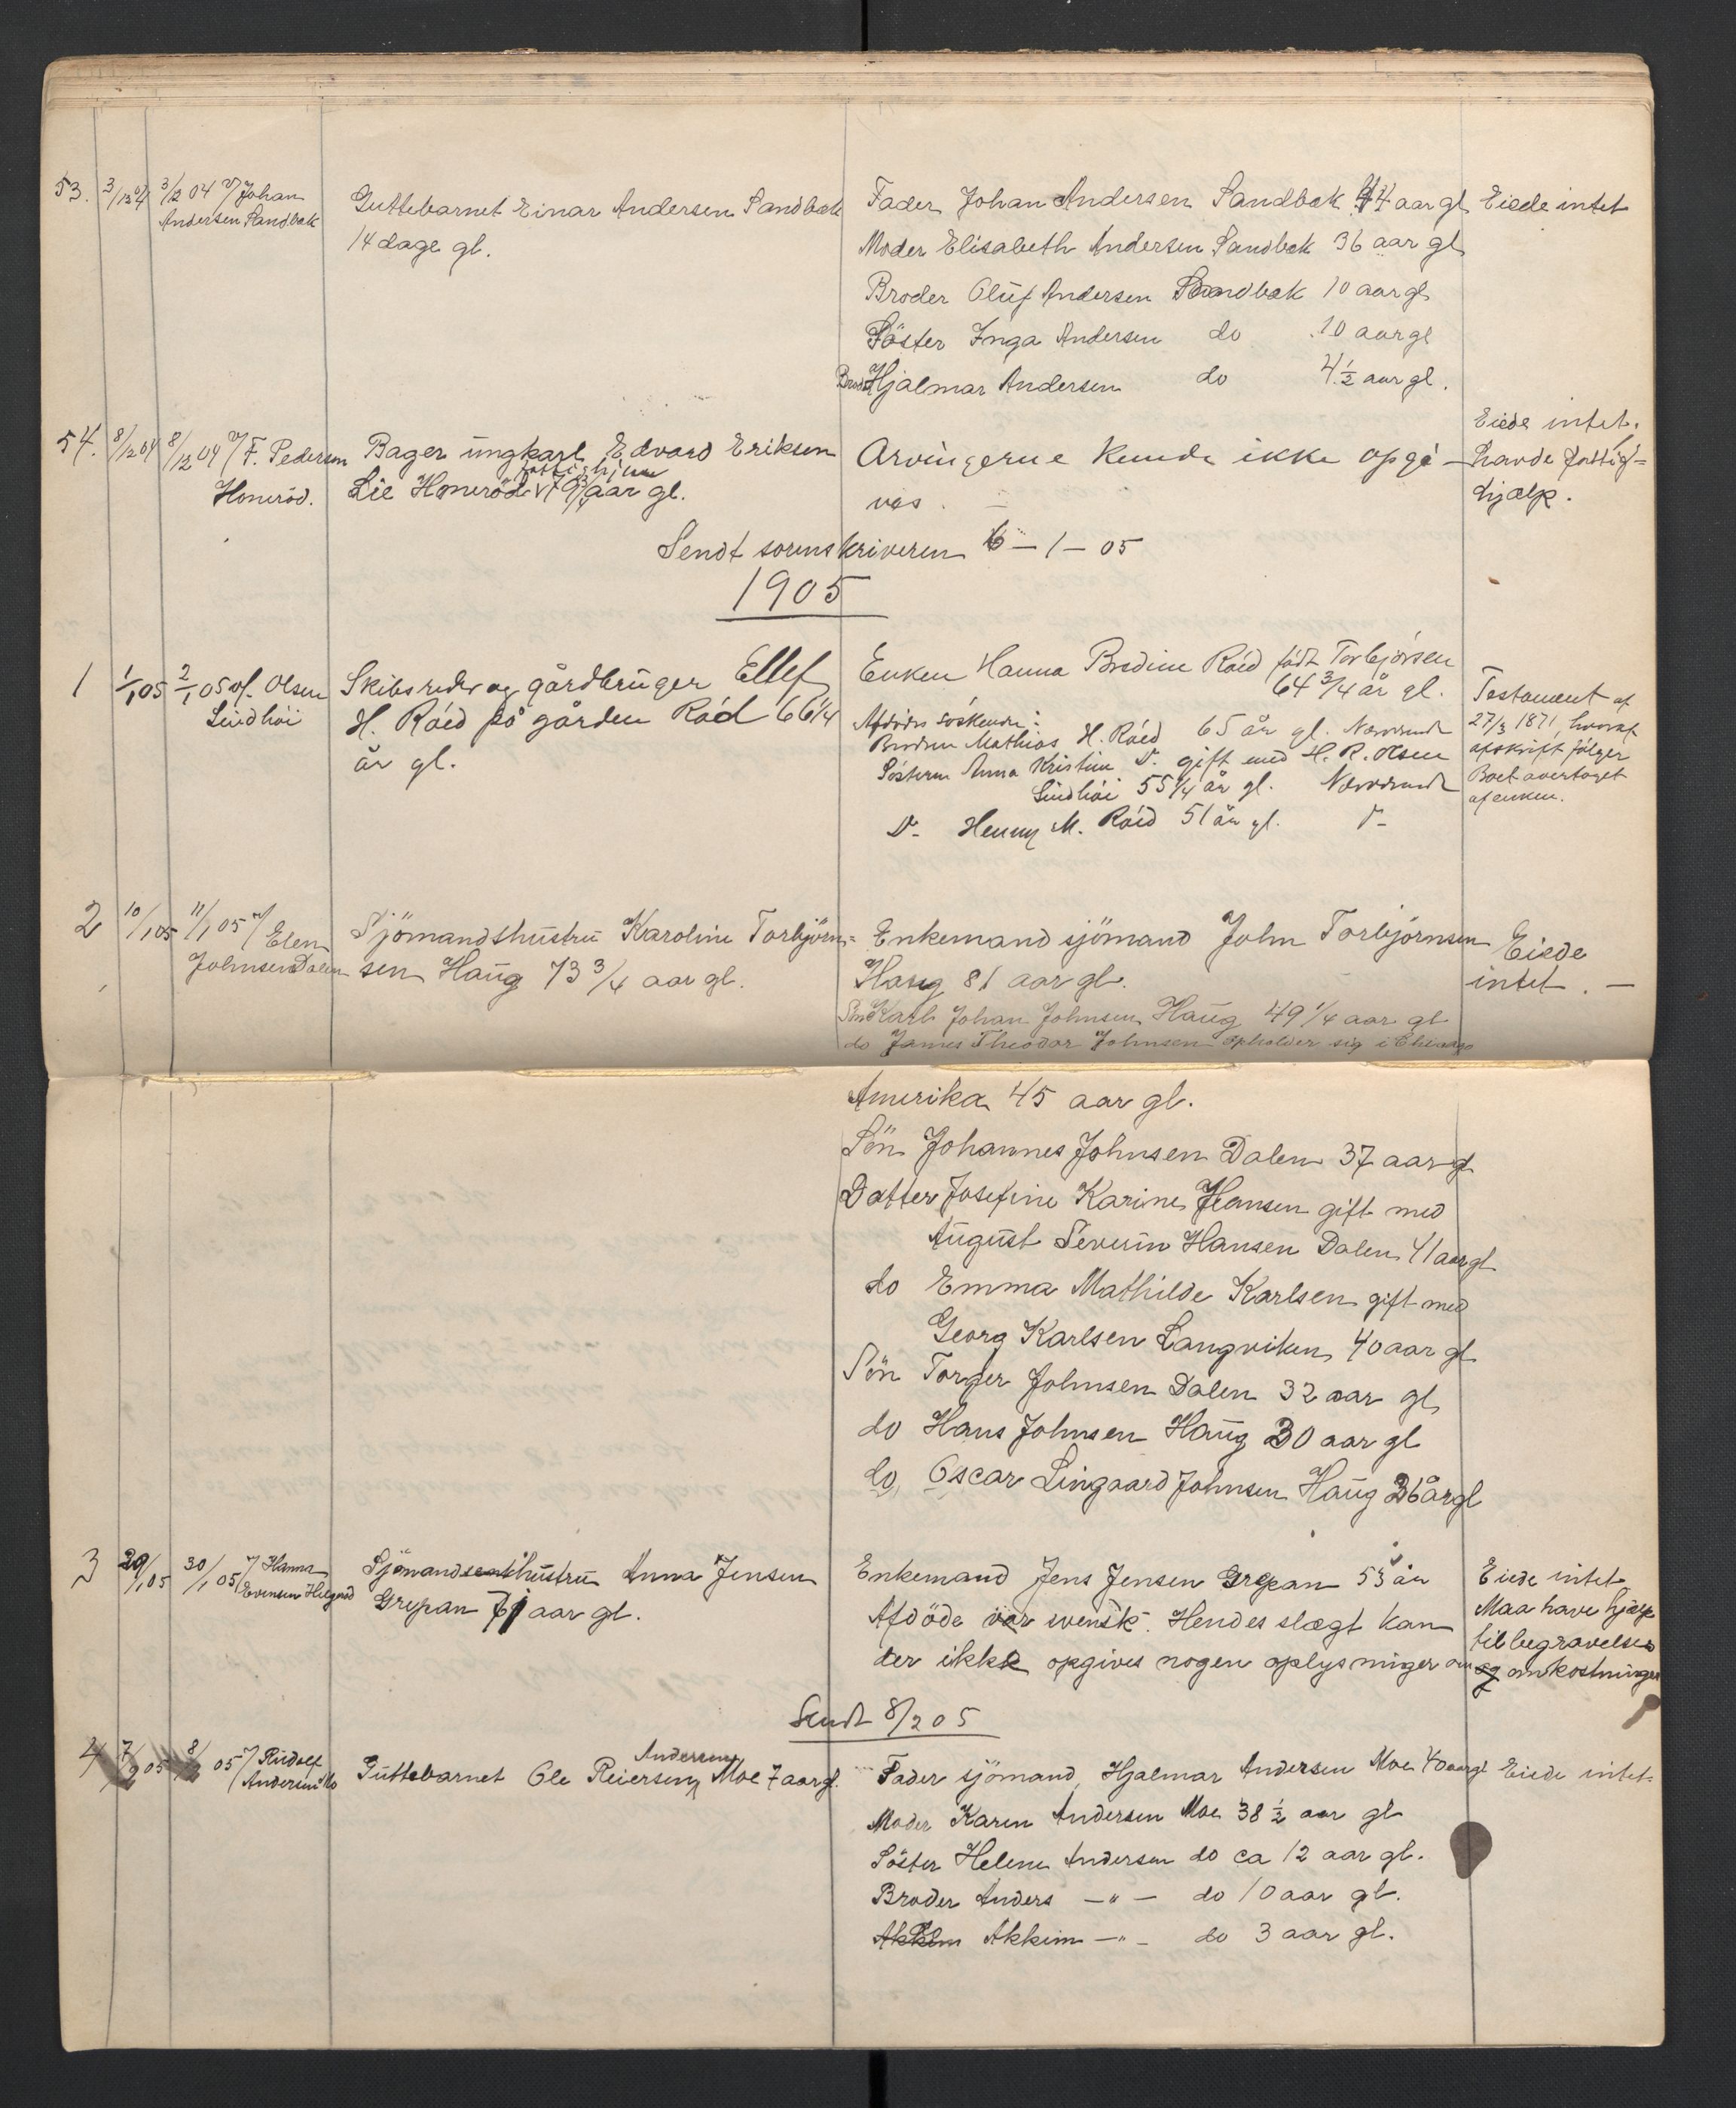 53. 3/12 04 3/12 04 v/ Johan
Andersen Sandbæk
Guttebarnet Einar Andersen Sandbæk
14 dage gl.
Fader Johan Andersen Sandbæk 44 aar gl
Moder Elisabeth Andersen Sandbæk 36 aar gl
Broder Oluf Andersen Sandbæk 10 aar gl
Söster Inga Andersen do 10 aar gl
Brod Hjalmar Andersen do 4 1/2 aar gl.
Eiede intet
54. 8/12 04 8/12 04 v/ F. Pedersen
Homeröd.
Bager ungkarl Edvard Eriksen
fattighjem
Lie Homeröd
aar gl.
Arvingerne kunde ikke opgi-
ves. –
Eiede intet.
havde fattig=
hjælp.
Sendt sorenskriveren 6 – 1 – 05
1905
1 1/1 05 2/1 05 of. Olsen
Lindhöi
Skibsreder og gårdbruger Ellef
H. Röed på gården Röd 66 1/4
år gl.
Enken Hanna Bredine Röed födt Torbjörsen
64 3/4 år gl.
Afdödes söskende:
Broderen Mathias H. Röed 65 år gl. Nærværende
Sösteren Anna Kristine Do gift med H. R. Olsen
Lindhöi 55 1/4 år gl. Nærværende
Do Henny M. Röed 51 år gl. Do
Testament af
27/3 1871, hvoraf
afskrift fölger
Boet overtaget
af enken.
2 10/1 05 11/1 05 v/ Elen
Johnsen Dalen
Sjömandshustru Karoline Torbjörn=
sen Haug 73 3/4 aar gl.
Enkemand sjömand John Torbjörnsen
Haug 81 aar gl.
Sön Karl Johan Johnsen Haug 49 1/4 aar gl
do James Theodor Johnsen opholder sig i Chicago
Eiede
intet. –
Amerika 45 aar gl.
Sön Johannes Johnsen Dalen 37 aar gl
Datter Josefine Karine Hansen gift med
August Severin Hansen Dalen 41 aar gl
do Emma Mathilde Karlsen gift med
Georg Karlsen Langviken 40 aar gl
Sön Torger Johnsen Dalen 32 aar gl
do Hans Johnsen Haug 30 aar gl
do Oscar Lingaard Johnsen Haug 26 år gl
3 29/1 05 30/1 05 v/ Hanna
Evensen
Sjömandshustru Anna Jensen
Grepan 71 aar gl.
Enkemand Jens Jensen Grepan 53 år
Afdöde var svensk. Hendes slægt kan
der ikke opgives nogen oplysninger om
Eiede intet
Maa have hjælp
til begravelses
og omkostninger
Sendt 8/2 05
4 7/2 05 8/2 05 v/ Rudolf
Andersen Mo
Andersen
Guttebarnet Ole Reiersen Moe 7 aar gl.
Fader sjömand Hjalmar Andersen Moe 40 aar gl
Moder Karen Andersen Moe 38 1/2 aar gl
Söster Helene Andersen do ca 12 aar gl.
Broder Anders – " – do 10 aar gl.
Akkim – " – do 3 aar gl.
Eiede intet